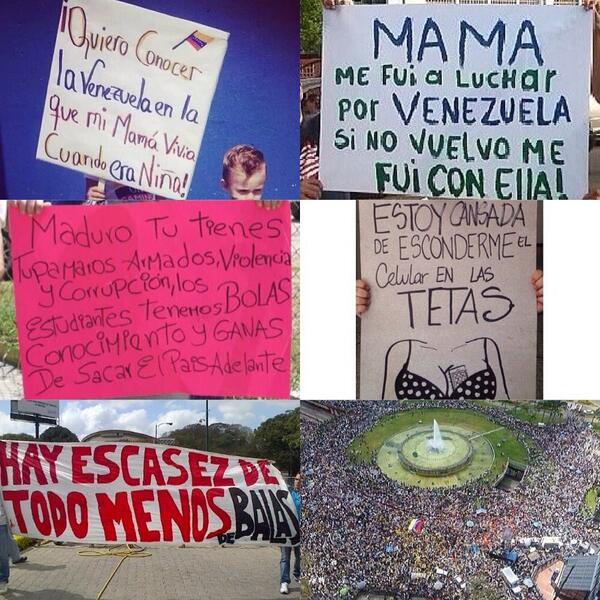 ¡Quiero Conocer
la Venezuela en la
que mi Mamá Vivia
Cuando era Niña!
MAMA
ME FUI a LUCHar
por VENEZUELA
Si NO VUELVO ME
FUI CON EllA!
Maduro Tu tienes
Tupamaros Armados, Violencia
y Corrupción, los
Estudiantes tenemos BOLAS
Conocimiento y GANAS
De Sacar El Pais Adelante
ESTOY CANSADA
DE ESCONDERME EL
Celular EN LAS
TETAS
HAY ESCASEZ DE
TODO MENOS DE BALAS